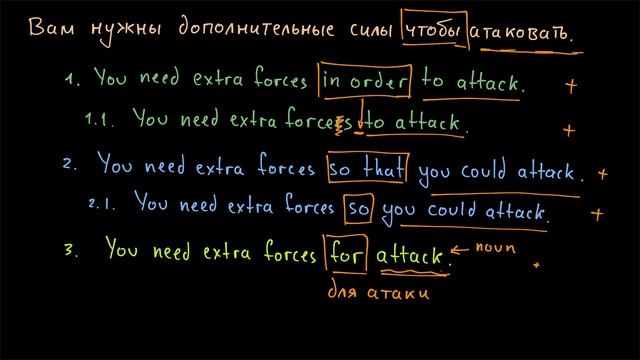 Вам нужны дополнительные силы чтобы атаковать.
1. You need extra forces in order to attack. +
1.1. You need extra forces to attack. +
2. You need extra forces so that you could attack. +
2.1. You need extra forces so you could attack. +
3. You need extra forces for attack. ← noun +
для атаки